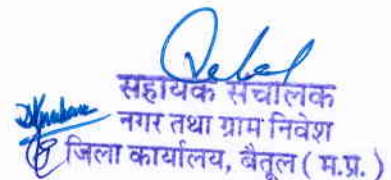 सहायक संचालक
नगर तथा ग्राम निवेश
जिला कार्यालय, बैतूल ( म.प्र. )